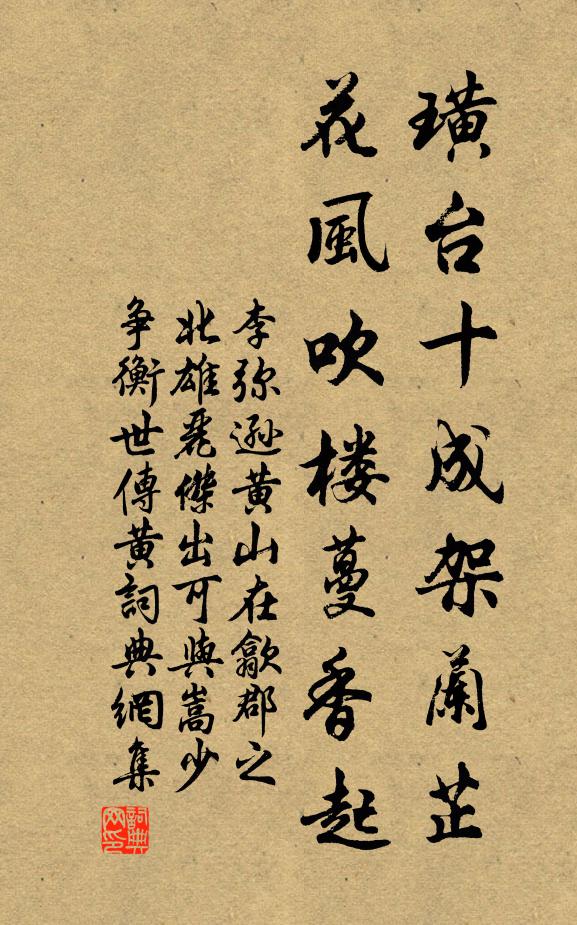 璜台十成架蘭芷
花風吹楼蔓香起
李弥遜黄山在歙郡之
北雄麗傑出可與嵩少
争衡世傳黄詞典網集
詞典
网印